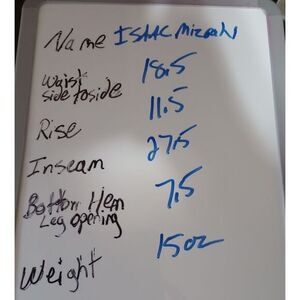 Name ISAAC Mizrahi
Waist 18.5
side to side
11.5
Rise
Inseam 27.5
Bottom Hem 7.5
Leg opening
Weight 15oz